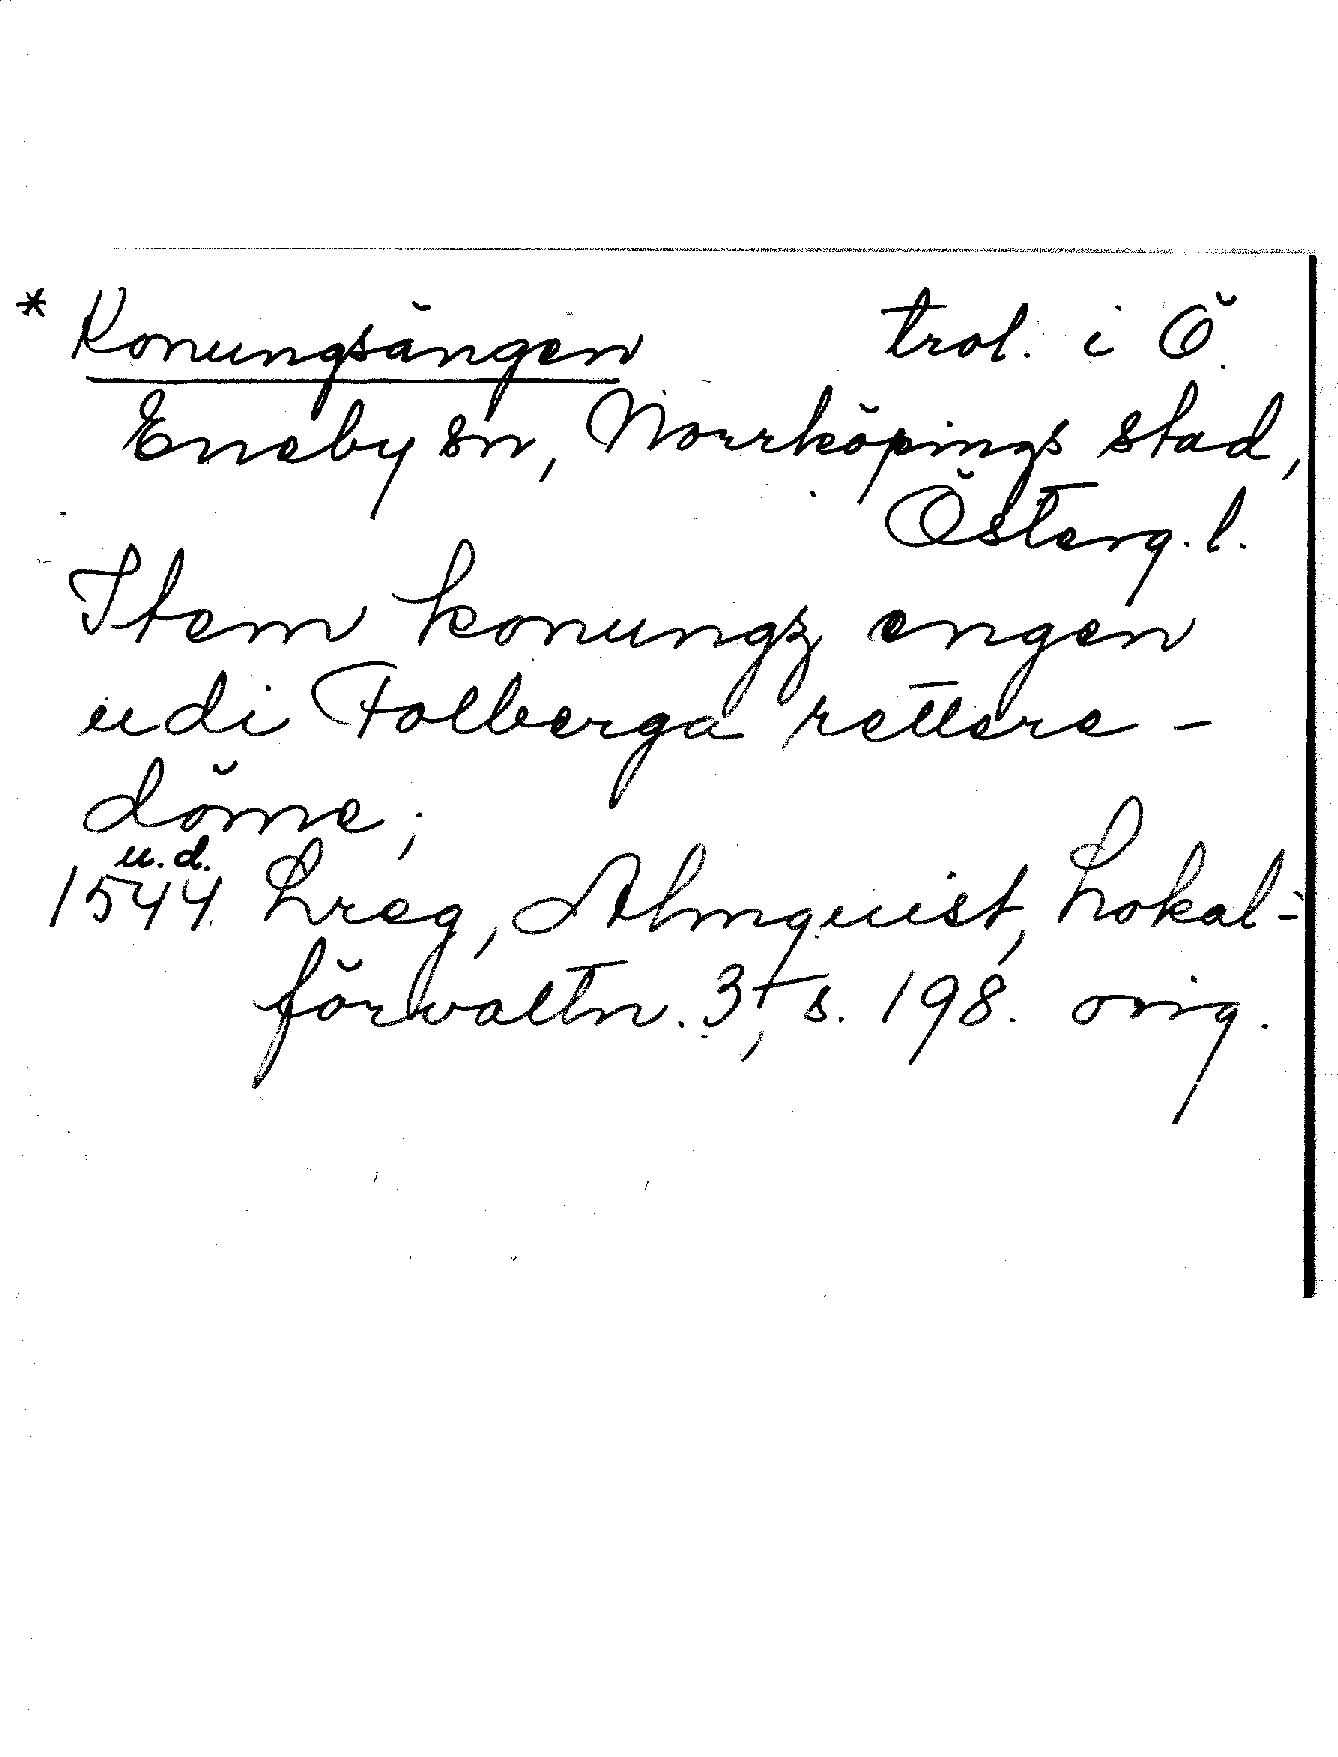 * Konungsängen trol. i Ö.
Eneby sn, Norrköpings stad,
Österg. l.
Item konungz engen
udi Folberga rettere-
döme;
u.d.
1544. Lreg, Almquist, Lokal-
förvaltn. 3, s. 198. orig.